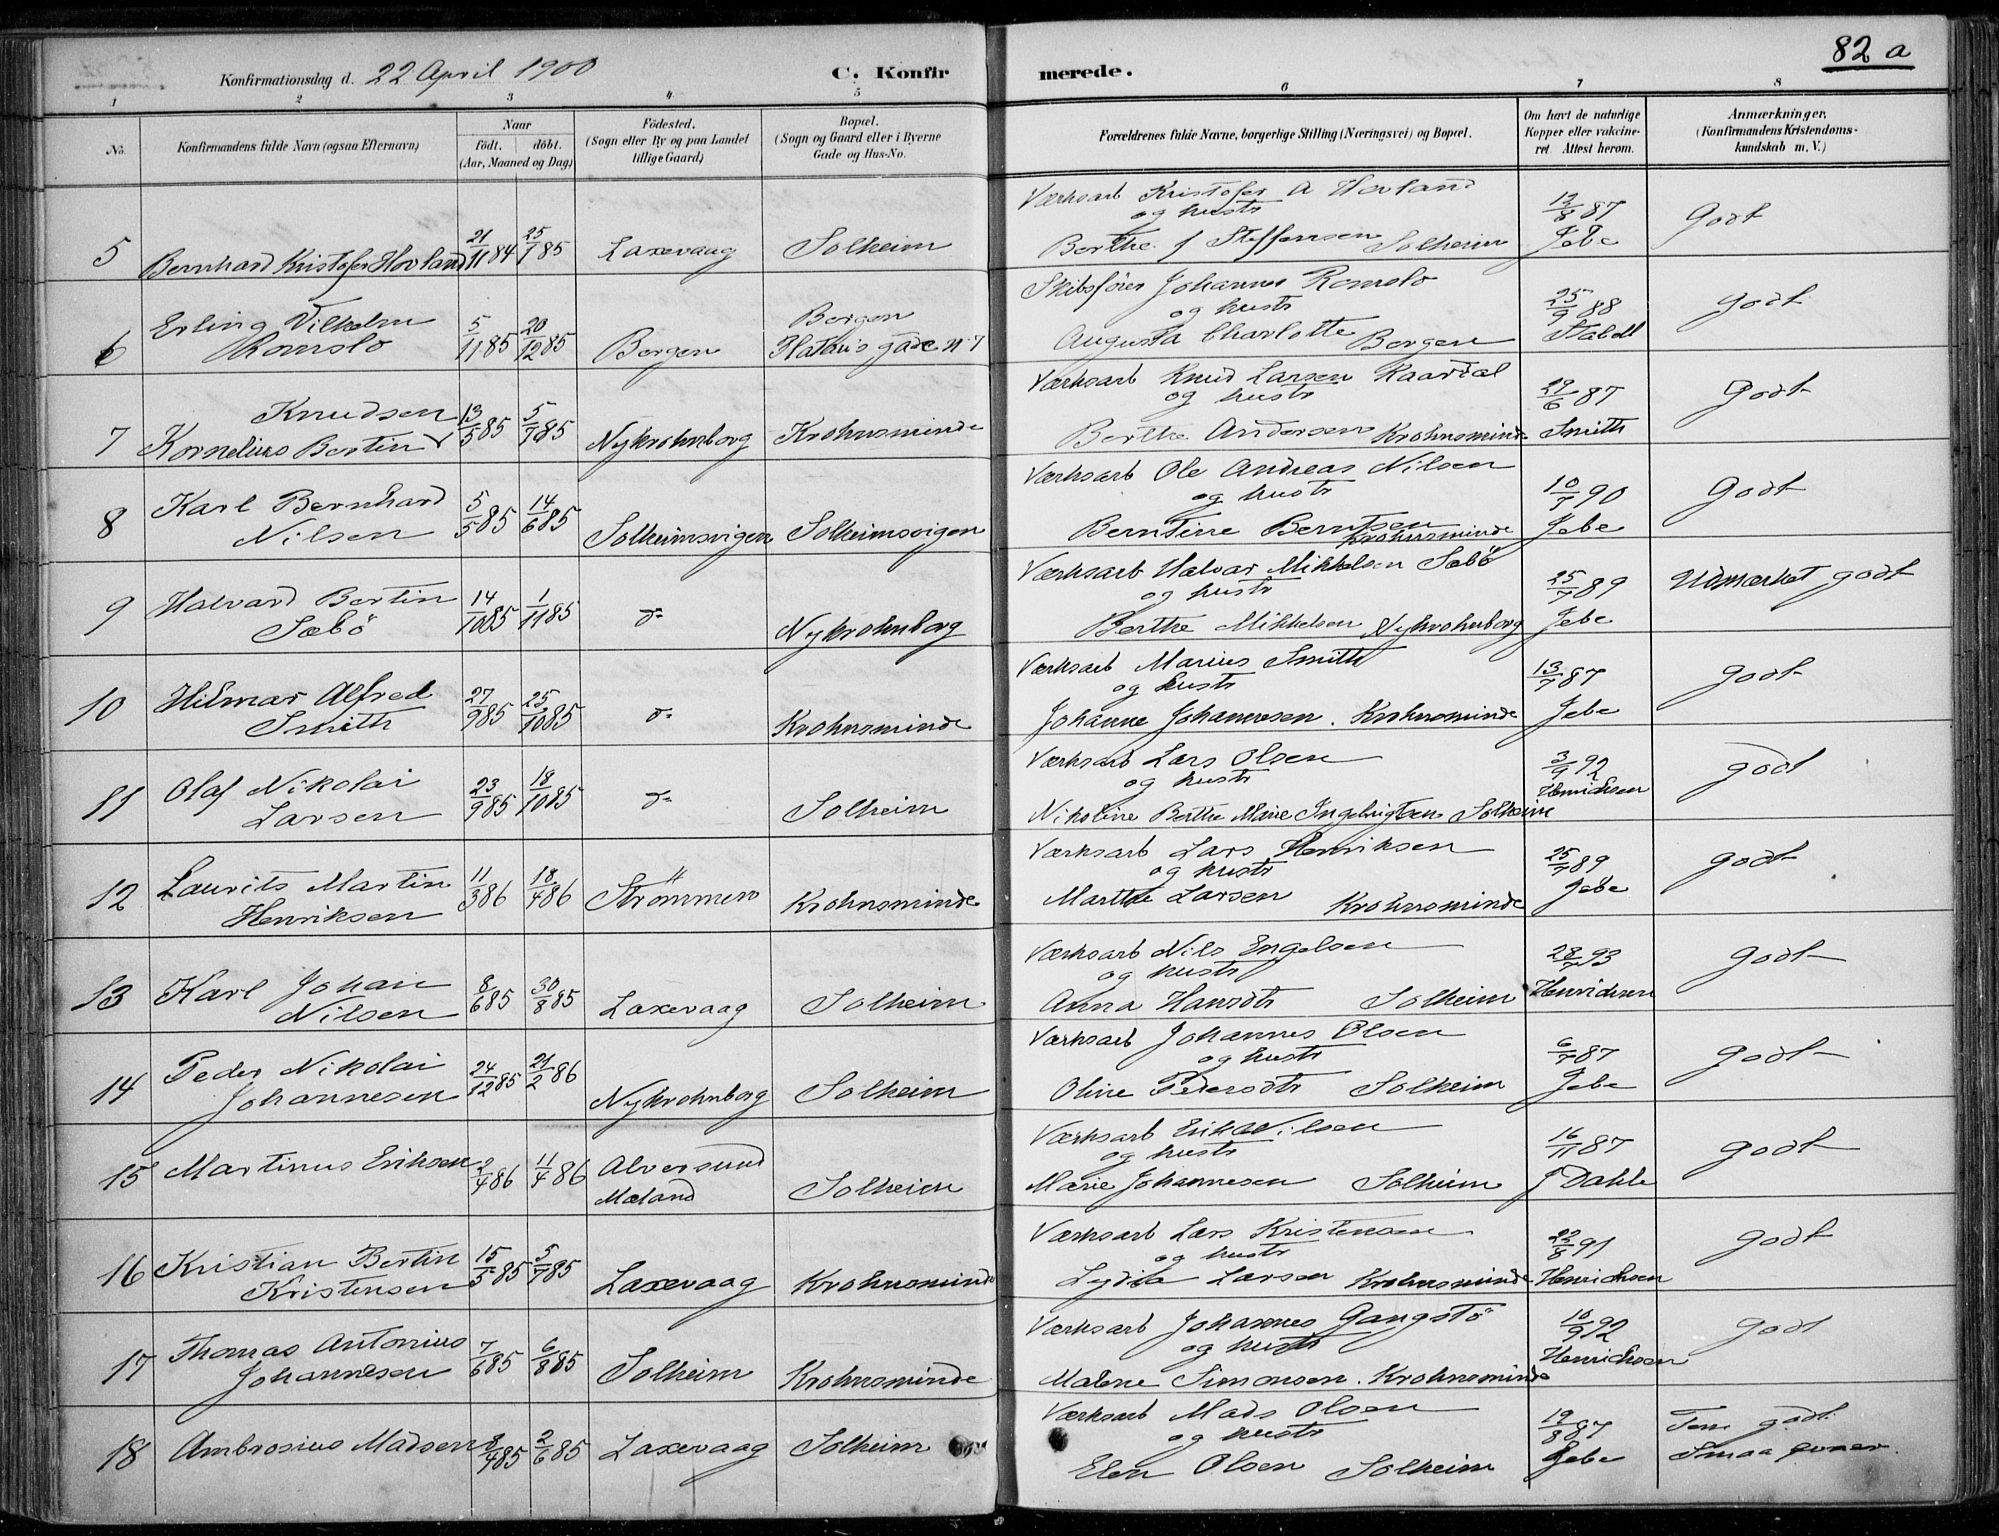 82 a
Konfirmationsdag d. 22 April 1900 C. Konfirmerede.
1 2 3 4 5 6 7 8
No. Konfirmandens fulde Navn (ogsaa Efternavn) Naar født. døbt. (Aar, Maaned og Dag) Fødested. (Sogn eller By og paa Landet tillige Gaard) Bopæl. (Sogn og Gaard eller i Byerne Gade og Hus-No. Forældrenes fulde Navne, borgerlige Stilling (Næringsvei) og Bopæl. Om havt de naturlige Kopper eller vakcineret. Attest herom. Anmærkninger. (Konfirmandens Kristendomskundskab m. V.)
5 Bernhard Kristofer Hovland 21/11 84 25/1 85 Laxevaag Solheim
Værksarb Kristofer A Hovland
og hustr
Berthe f Steffensen Solheim
12/8 87 Jebe Godt
6 Erling Vilhelm
Romslo 5/11 85 20/12 85 Bergen Bergen
gade nº 7
Skibsfører Johannes Romslo
og hustr
Augusta Charlotte Bergen
25/9 88 Stabell Godt
7 Knudsen
Kornelius Bertin 13/5 85 5/7 85 Nykrohnborg Krohnsminde
Værksarb Knud Larsen Kaardal
og hustr
Berthe Andersen Krohnsminde
29/6 87 Smith Godt
8 Karl Bernhard
Nilsen 5/5 85 14/6 85 Solheimsvigen Solheimsvigen
Værksarb Ole Andreas Nilsen
og hustr
Berntine Berntsen
Krohnsminde
10/7 90 Jebe Godt
9 Halvard Bertin
Sæbö 14/10 85 1/11 85 d= Nykrohnborg
Værksarb Halvar Mikkelsen Sæbö
og hustr
Berthe Mikkelsen Nykrohnborg
25/7 89 Jebe Udmærket godt
10 Hilmar Alfred
Smith 27/9 85 25/10 85 d= Krohnsminde
Værksarb Marius Smith
og hustr
Johanne Johannesen. Krohnsminde
13/7 87 Jebe Godt
11 Olaf Nikolai
Larsen 23/9 85 18/10 85 d= Solheim
Værksarb Lars Olsen
og hustr
Nikoline Berthe Marie Ingebrigtsen Solheim
3/9 92 Henrichsen godt
12 Laurits Martin
Henriksen 11/3 86 18/4 86 Strömmen Krohnsminde
Værksarb Lars Henriksen
og hustr
Marthe Larsen Krohnsminde
25/7 89 Jebe godt
13 Karl Johan
Nilsen 8/6 85 30/8 85 Laxevaag Solheim
Værksarb Nils Engelsen
og hustr
Anna Hansdtr Solheim
28/7 93 Henrichsen godt
14 Peder Nikolai
Johannesen 24/12 85 21/2 86 Nykrohnborg Solheim
Værksarb Johannes Olsen
og hustr
Oline Pedersdtr Solheim
6/7 87 Jebe Godt
15 Martinus Eriksen 2/4 86 11/4 86 Alversund
Mæland Solheim
Værksarb Erik Nilsen
og hustr
Marie Johannesen Solheim
16/11 87 J Dahle godt
16 Kristian Bertin
Kristensen 15/5 85 5/7 85 Laxevaag Krohnsminde
Værksarb Lars Kristensen
og hustr
Lydia Larsen Krohnsminde
22/8 91 Henrichsen Godt
17 Thomas Antonius
Johannesen 7/6 85 6/8 85 Solheim Krohnsminde
Værksarb Johannes Gangstö
og hustr
Malene Simonsen. Krohnsminde
10/9 92 Henrichsen Godt
18 Ambrosius Madsen 8/4 85 2/6 85 Laxevaag Solheim
Værksarb Mads Olsen
og hustr
Elen Olsen Solheim
19/8 87 Jebe Tem godt.
Smaa evner.